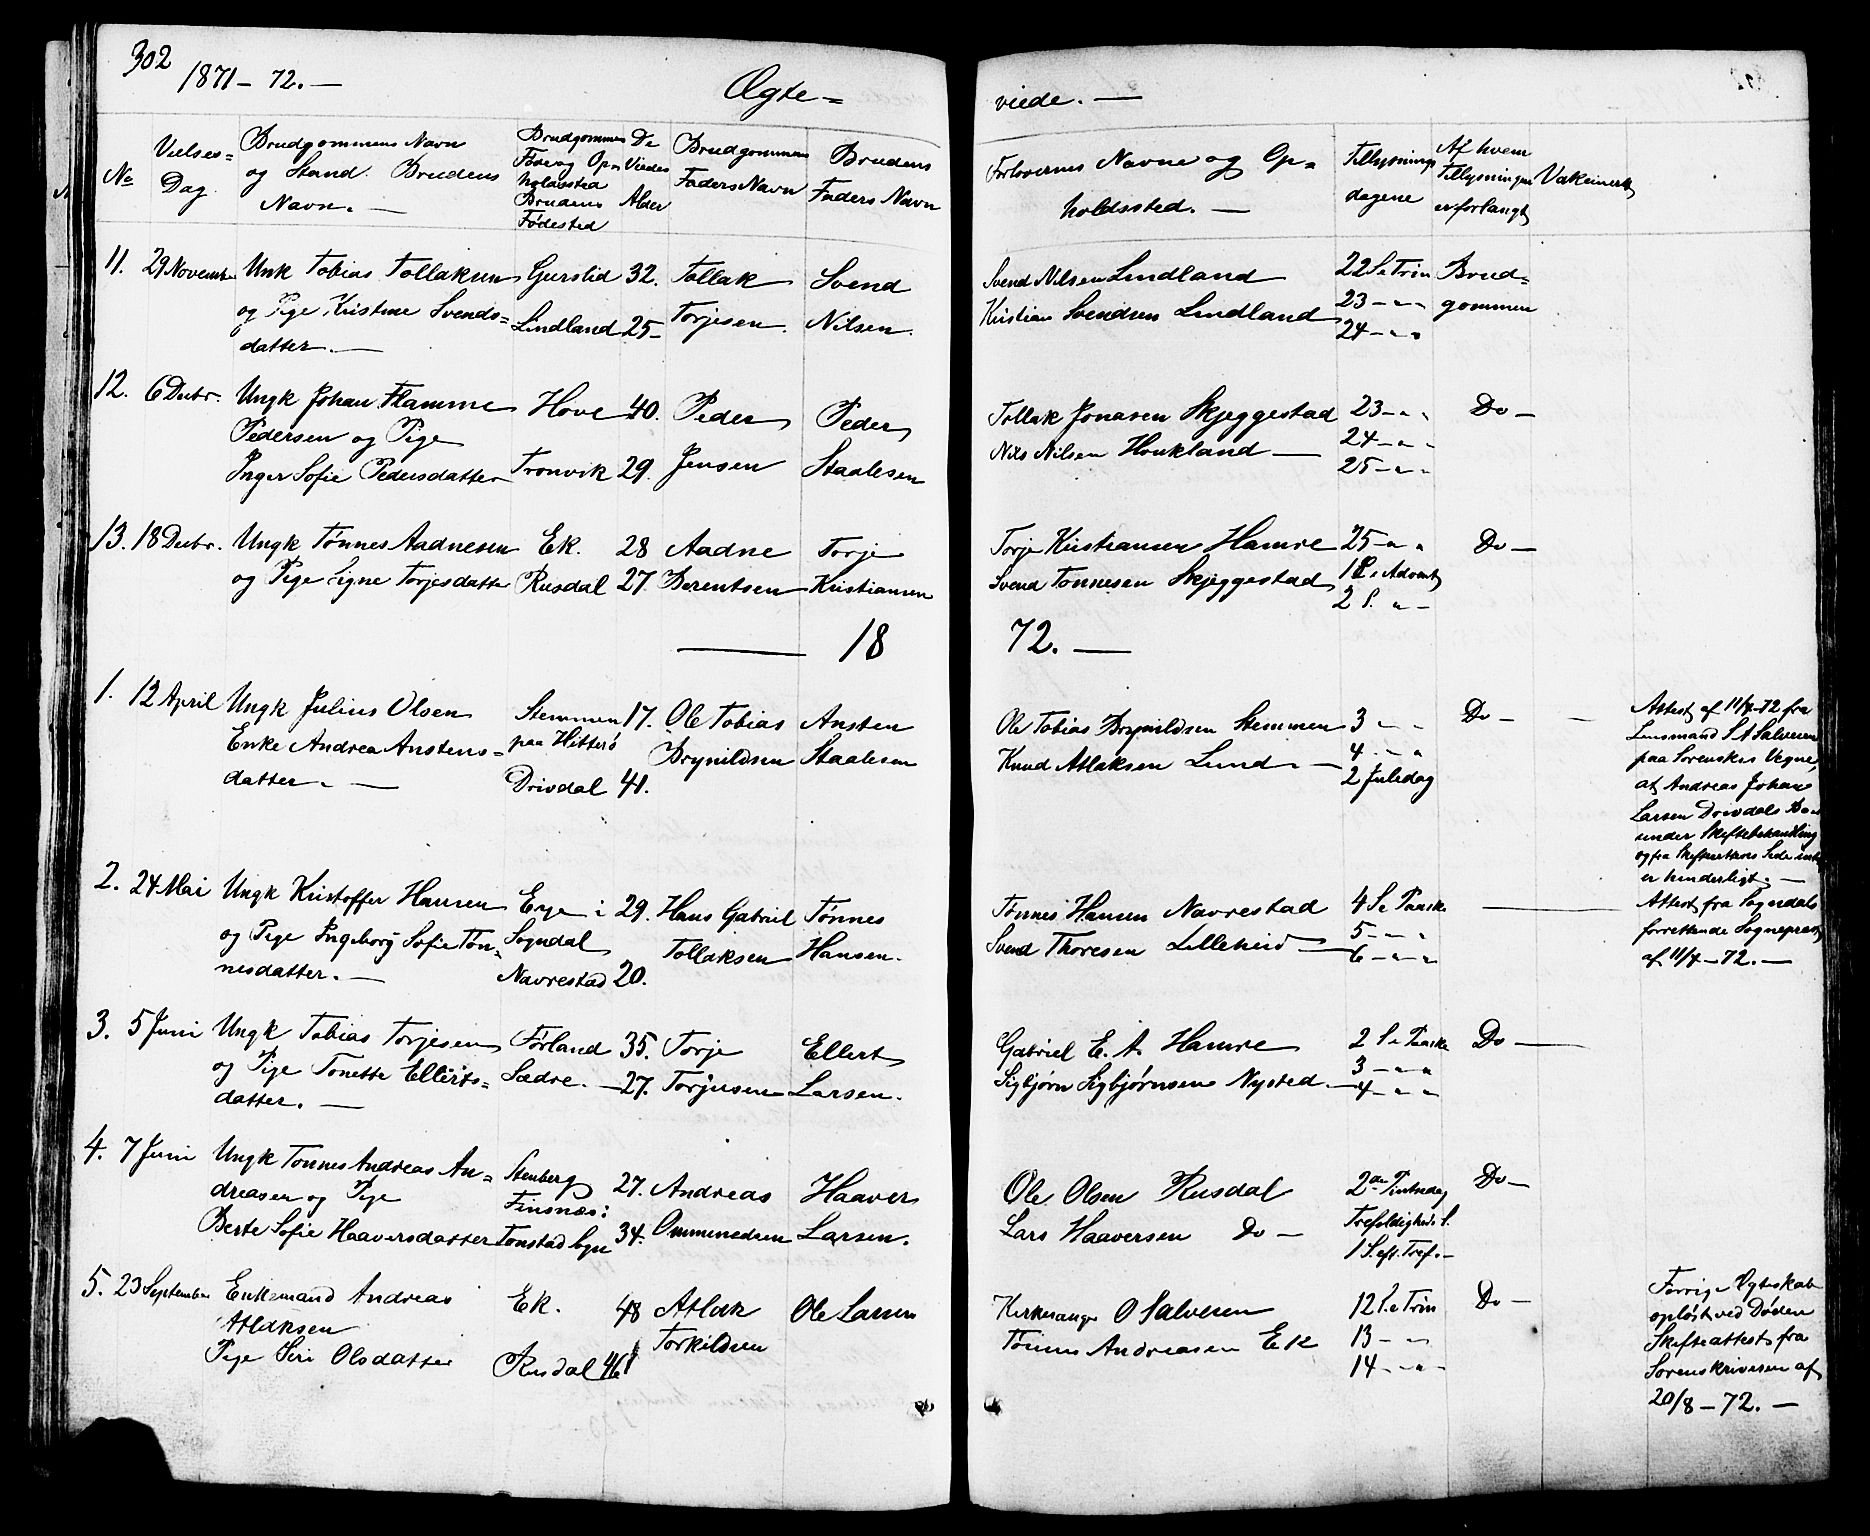 302
1871 - 72. -
Ægte = viede. -
No
Vielses=
Dag
Brudgommens Navn
og Stand. Brudens
Navn. -
Brudgommens
Føde og Op=
holdssted
Brudens
Fødested
De
Viedes
Alder
Brudgommens
Faders Navn
Brudens
Faders Navn
Forlovernes Navne og Op=
holdssted. -
Tillysnings
dagene
Af hvem
Tillysningen
er forlangt
11. 29 November Unk Tobias Tollaksen Gurslid 32. Tollak Svend Svend Nilsen Lindland 22 S e Trin Brud=
og Pige Kristine Svends= Lindland 25 - Torjesen. Nilsen. Kristian Svendsen Lindland 23 - " " gommen
datter. - 24 - " "
12. 6 Decbr. Ungk Johan Flamme Hove 40. Peder Peder Tollak Jonasen Skjeggestad 23 - " " Do -
Pedersen og Pige Nils Nilsen Houkland - 24 - " "
Inger Sofie Pedersdatter Tronvik 29. Jensen Staalesen 25 - " "
13. 18 Decbr. Ungk Tønnes Aadnesen Ek. 28 Aadne Torje Torje Kristiansen Hamre 25 - " " Do -
og Pige Signe Torjesdatter Rusdal 27. Berentsen Kristiansen Svend Tønnesen Skjeggestad 1 S. i Advent
2 S. " -
18 72. -
1. 12 April Ungk Julius Olsen Stemmen 17. Ole Tobias Ansten Ole Tobias Brynildsen Stemmen 3 - " Do - -
Enke Andrea Anstens= paa Hitterø Brynildsen Staalesen Knud Atlaksen Lund. - 4 - " "
datter. - Drivdal 41. 2 Juledag
Attest af 11/4-72 fra
Lensmand S A Salvesen
paa Sorenskr Vegne,
at Andreas Johan
Larsen Drivdals Bo er
under Skiftebehandling
og fra Skifterettens Side intet
er hinderligt. -
2. 24 Mai Ungk Kristoffer Hansen Eye i 29. Hans Gabriel Tønnes Tønnes Hansen Navrestad 4 S e Paaske -
og Pige Ingeborg Sofie Tøn= Sogndal Tollaksen Hansen. Svend Thoresen Lilleheid - 5 - " "
nesdatter. - Navrestad 20. 6 - " "
Attest fra Sogndals
forrettende Sognepræst
af 11/4 - 72. -
3. 5 Juni Ungk Tobias Torjesen Førland 35. Torje Ellert Gabriel E. A. Hamre 2 S e Paaske Do -
og Pige Tonette Ellerts= Sædre. - 27. Torjusen Larsen. Sigbjørn Sigbjørnsen Nysted. - 3 - " "
datter. - 4 - " "
4. 7 Juni Ungk Tønnes Andreas An= Stenberg 27. Andreas Haaver Ole Olsen Rusdal 2den Pintsedag Do -
dreasen og Pige Finsnæs i Lars Haaversen Do - Trefoldigheds S.
Berte Sofie Haaversdatter Tonstad sgn 34. Ommundsen Larsen. 1 S. eft. Tref. -
5. 23 September Enkemand Andreas Ek. 48 Atlak Ole Larsen Kirkesanger O Salvesen 12 S e Trin Do -
Atlaksen Torkildsen Tønnes Andreasen Ek 13 - " "
Pige Siri Olsdatter Rusdal 46 14 - " "
Forrige Ægteskab
opløst ved Døden
Skifteattest fra
Sorenskriveren af
20/8 - 72. -